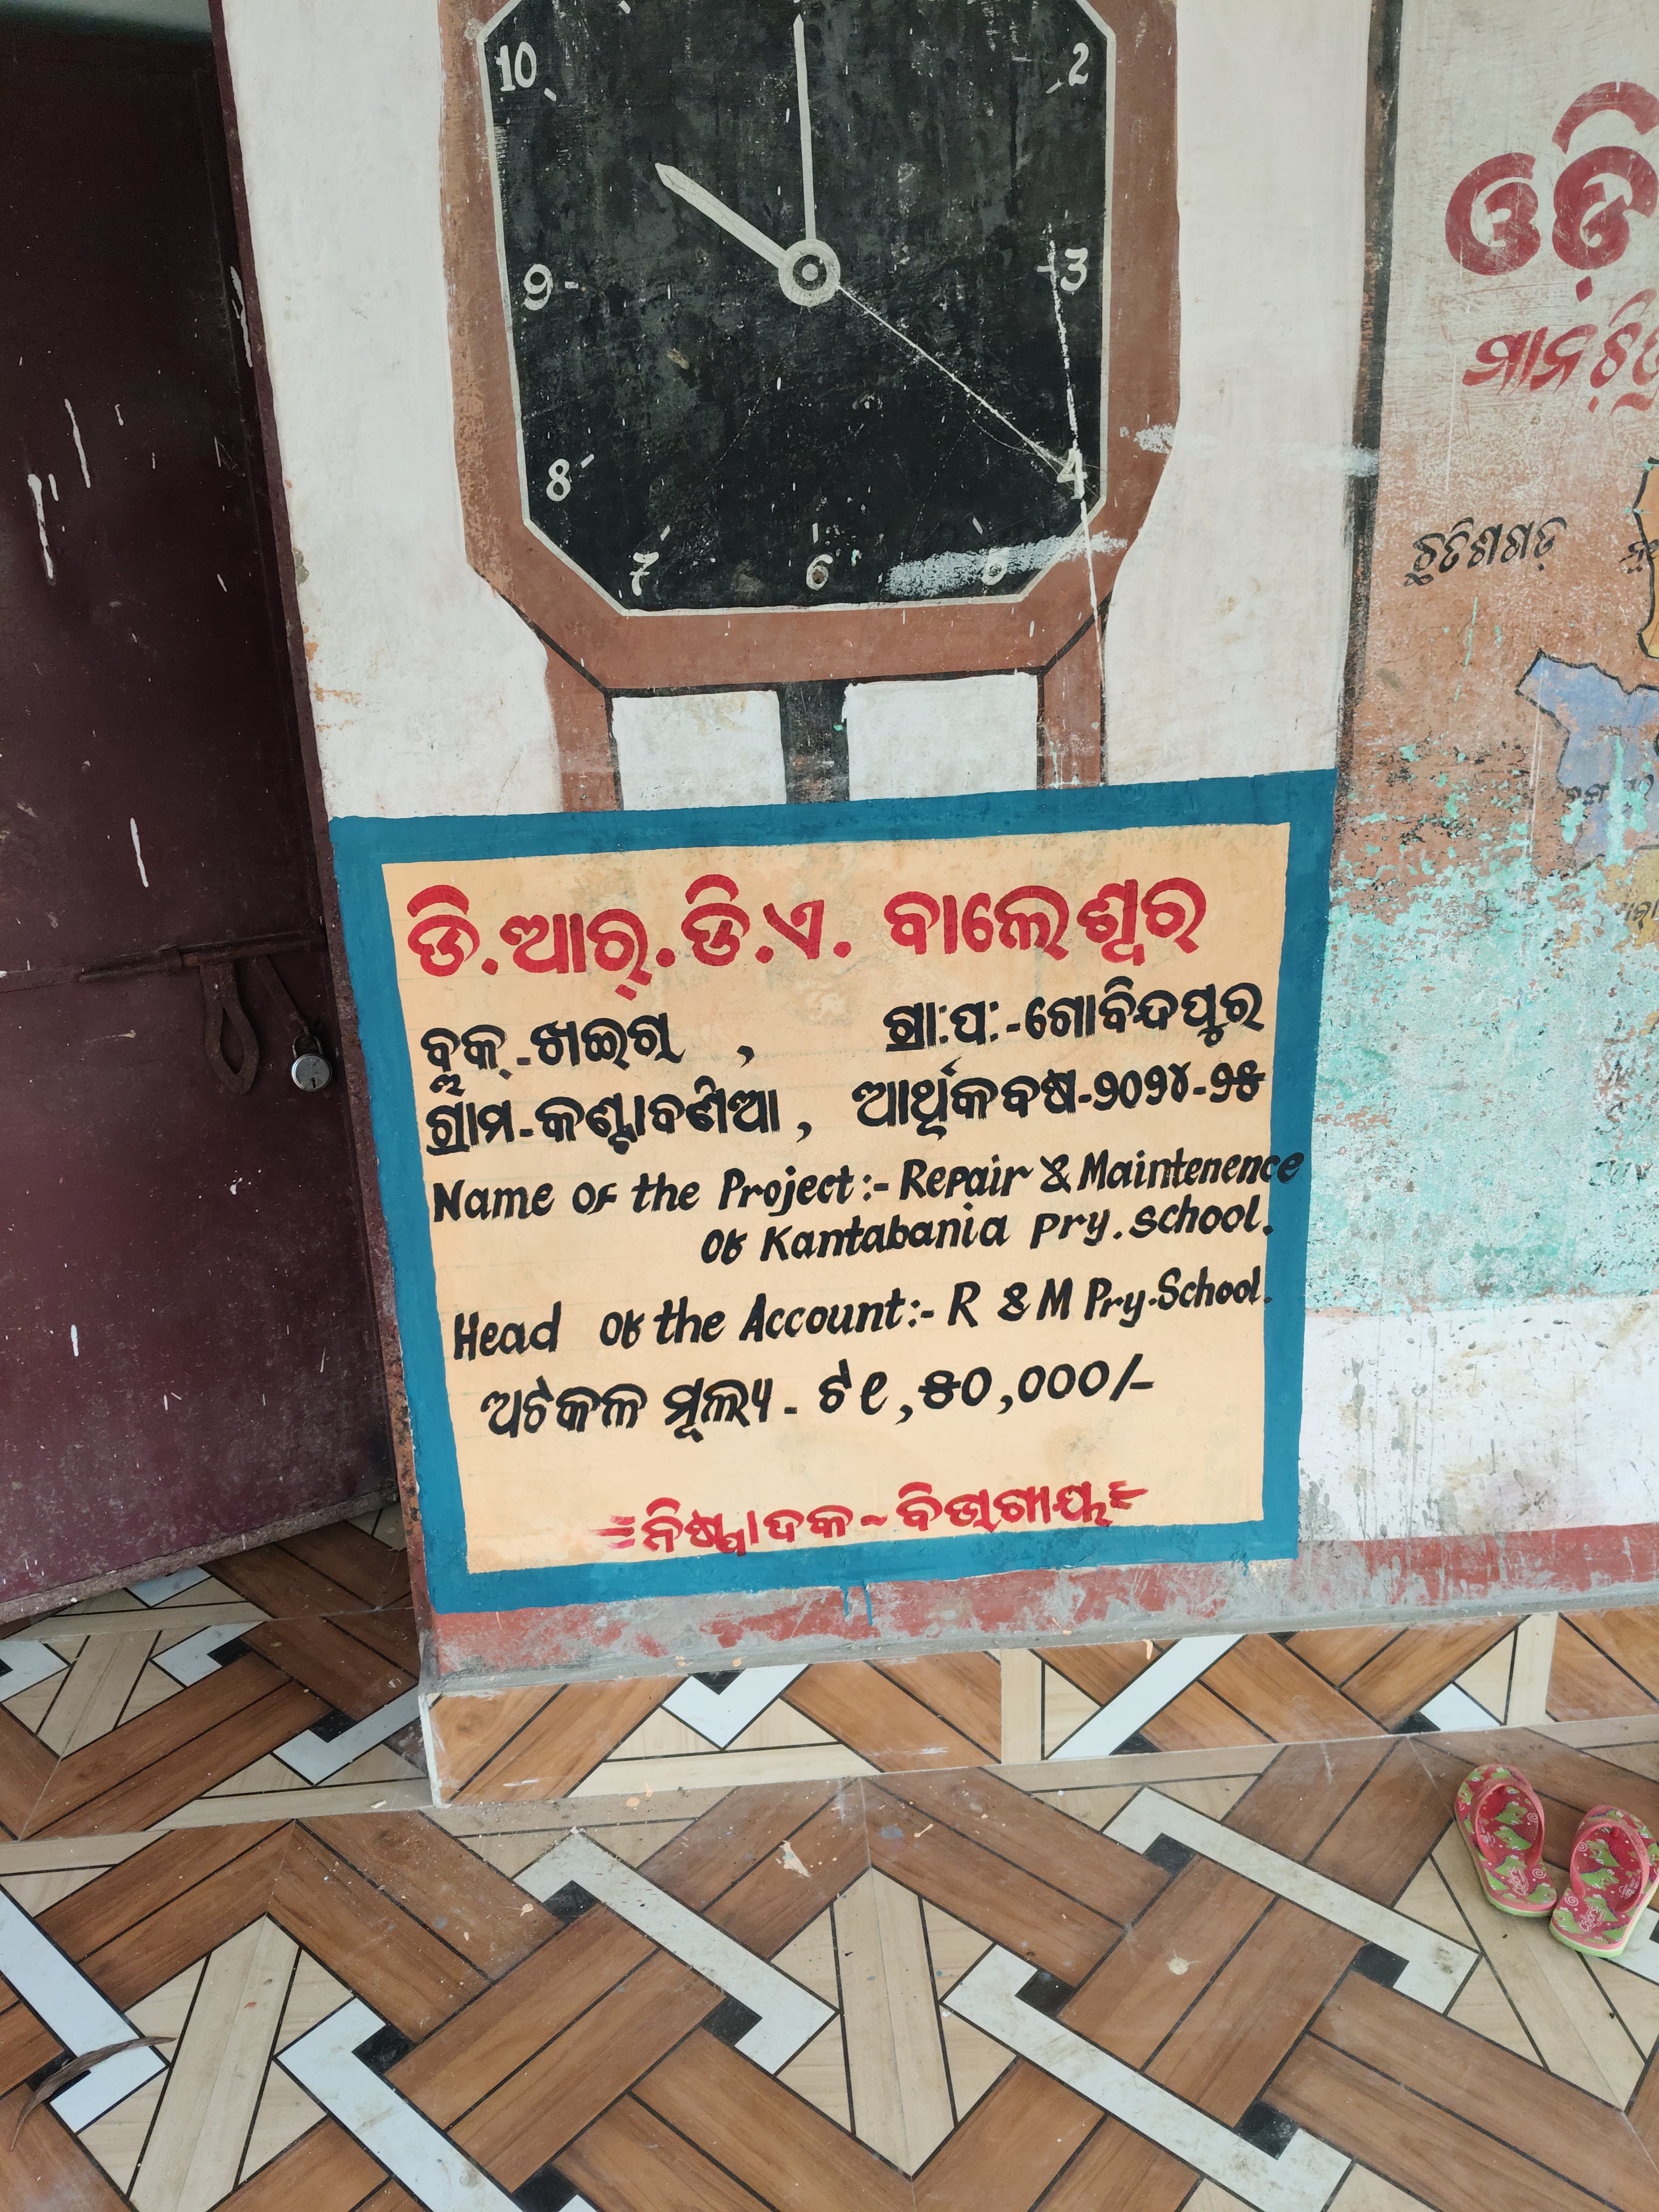 10
2
9
3
8
4
7
6
ଓଡ଼ି
ମାନଚିତ୍ର
ଛତିଶଗଡ଼
ଡି.ଆର୍.ଡି.ଏ. ବାଲେଶ୍ଵର
ବ୍ଲକ୍-ଖଇରା , ଗ୍ରା:ପ:-ଗୋବିନ୍ଦପୁର
ଗ୍ରାମ-କଣ୍ଟାବଣିଆ, ଆର୍ଥିକବର୍ଷ-୨୦୨୪-୨୫
Name of the Project:- Repair & Maintenence
of Kantabania pry. school.
Head of the Account:- R & M Pry.School.
ଅଟକଳ ମୂଲ୍ୟ - ଟ ୧,୫୦,୦୦୦/-
ନିଷ୍ପାଦକ - ବିଭାଗୀୟ